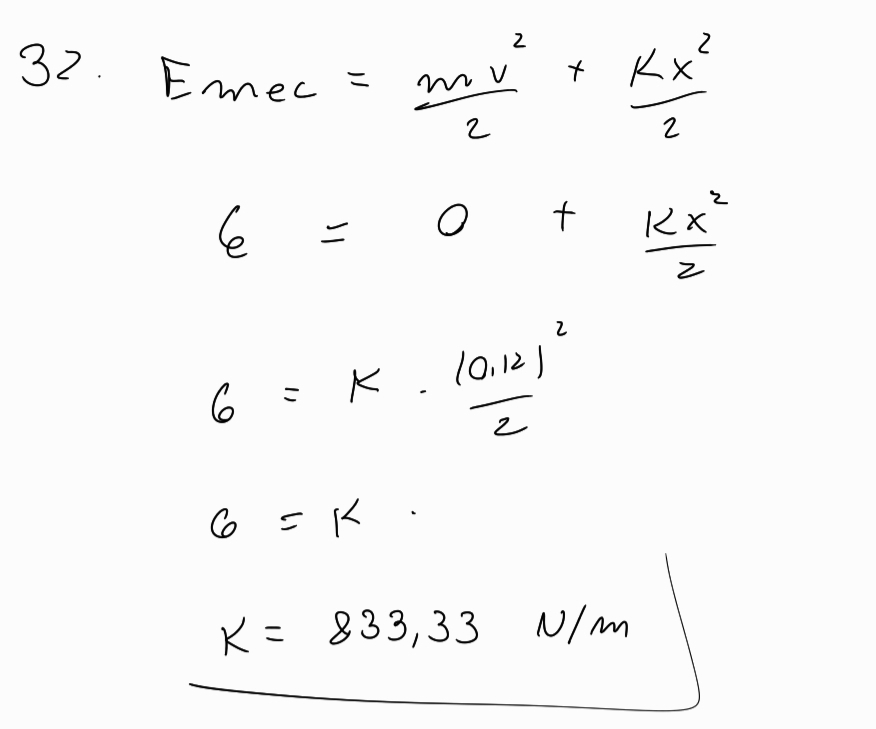 32. Emec = mv²/2 + Kx²/2
6 = 0 + Kx²/2
6 = K . (0,12)²/2
6 = K .
K = 833,33 N/m